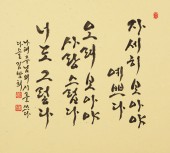 자세히 보아야
예쁘다
오래 보아야
사랑스럽다
너도 그렇다
나태주님의 시를 쓰다